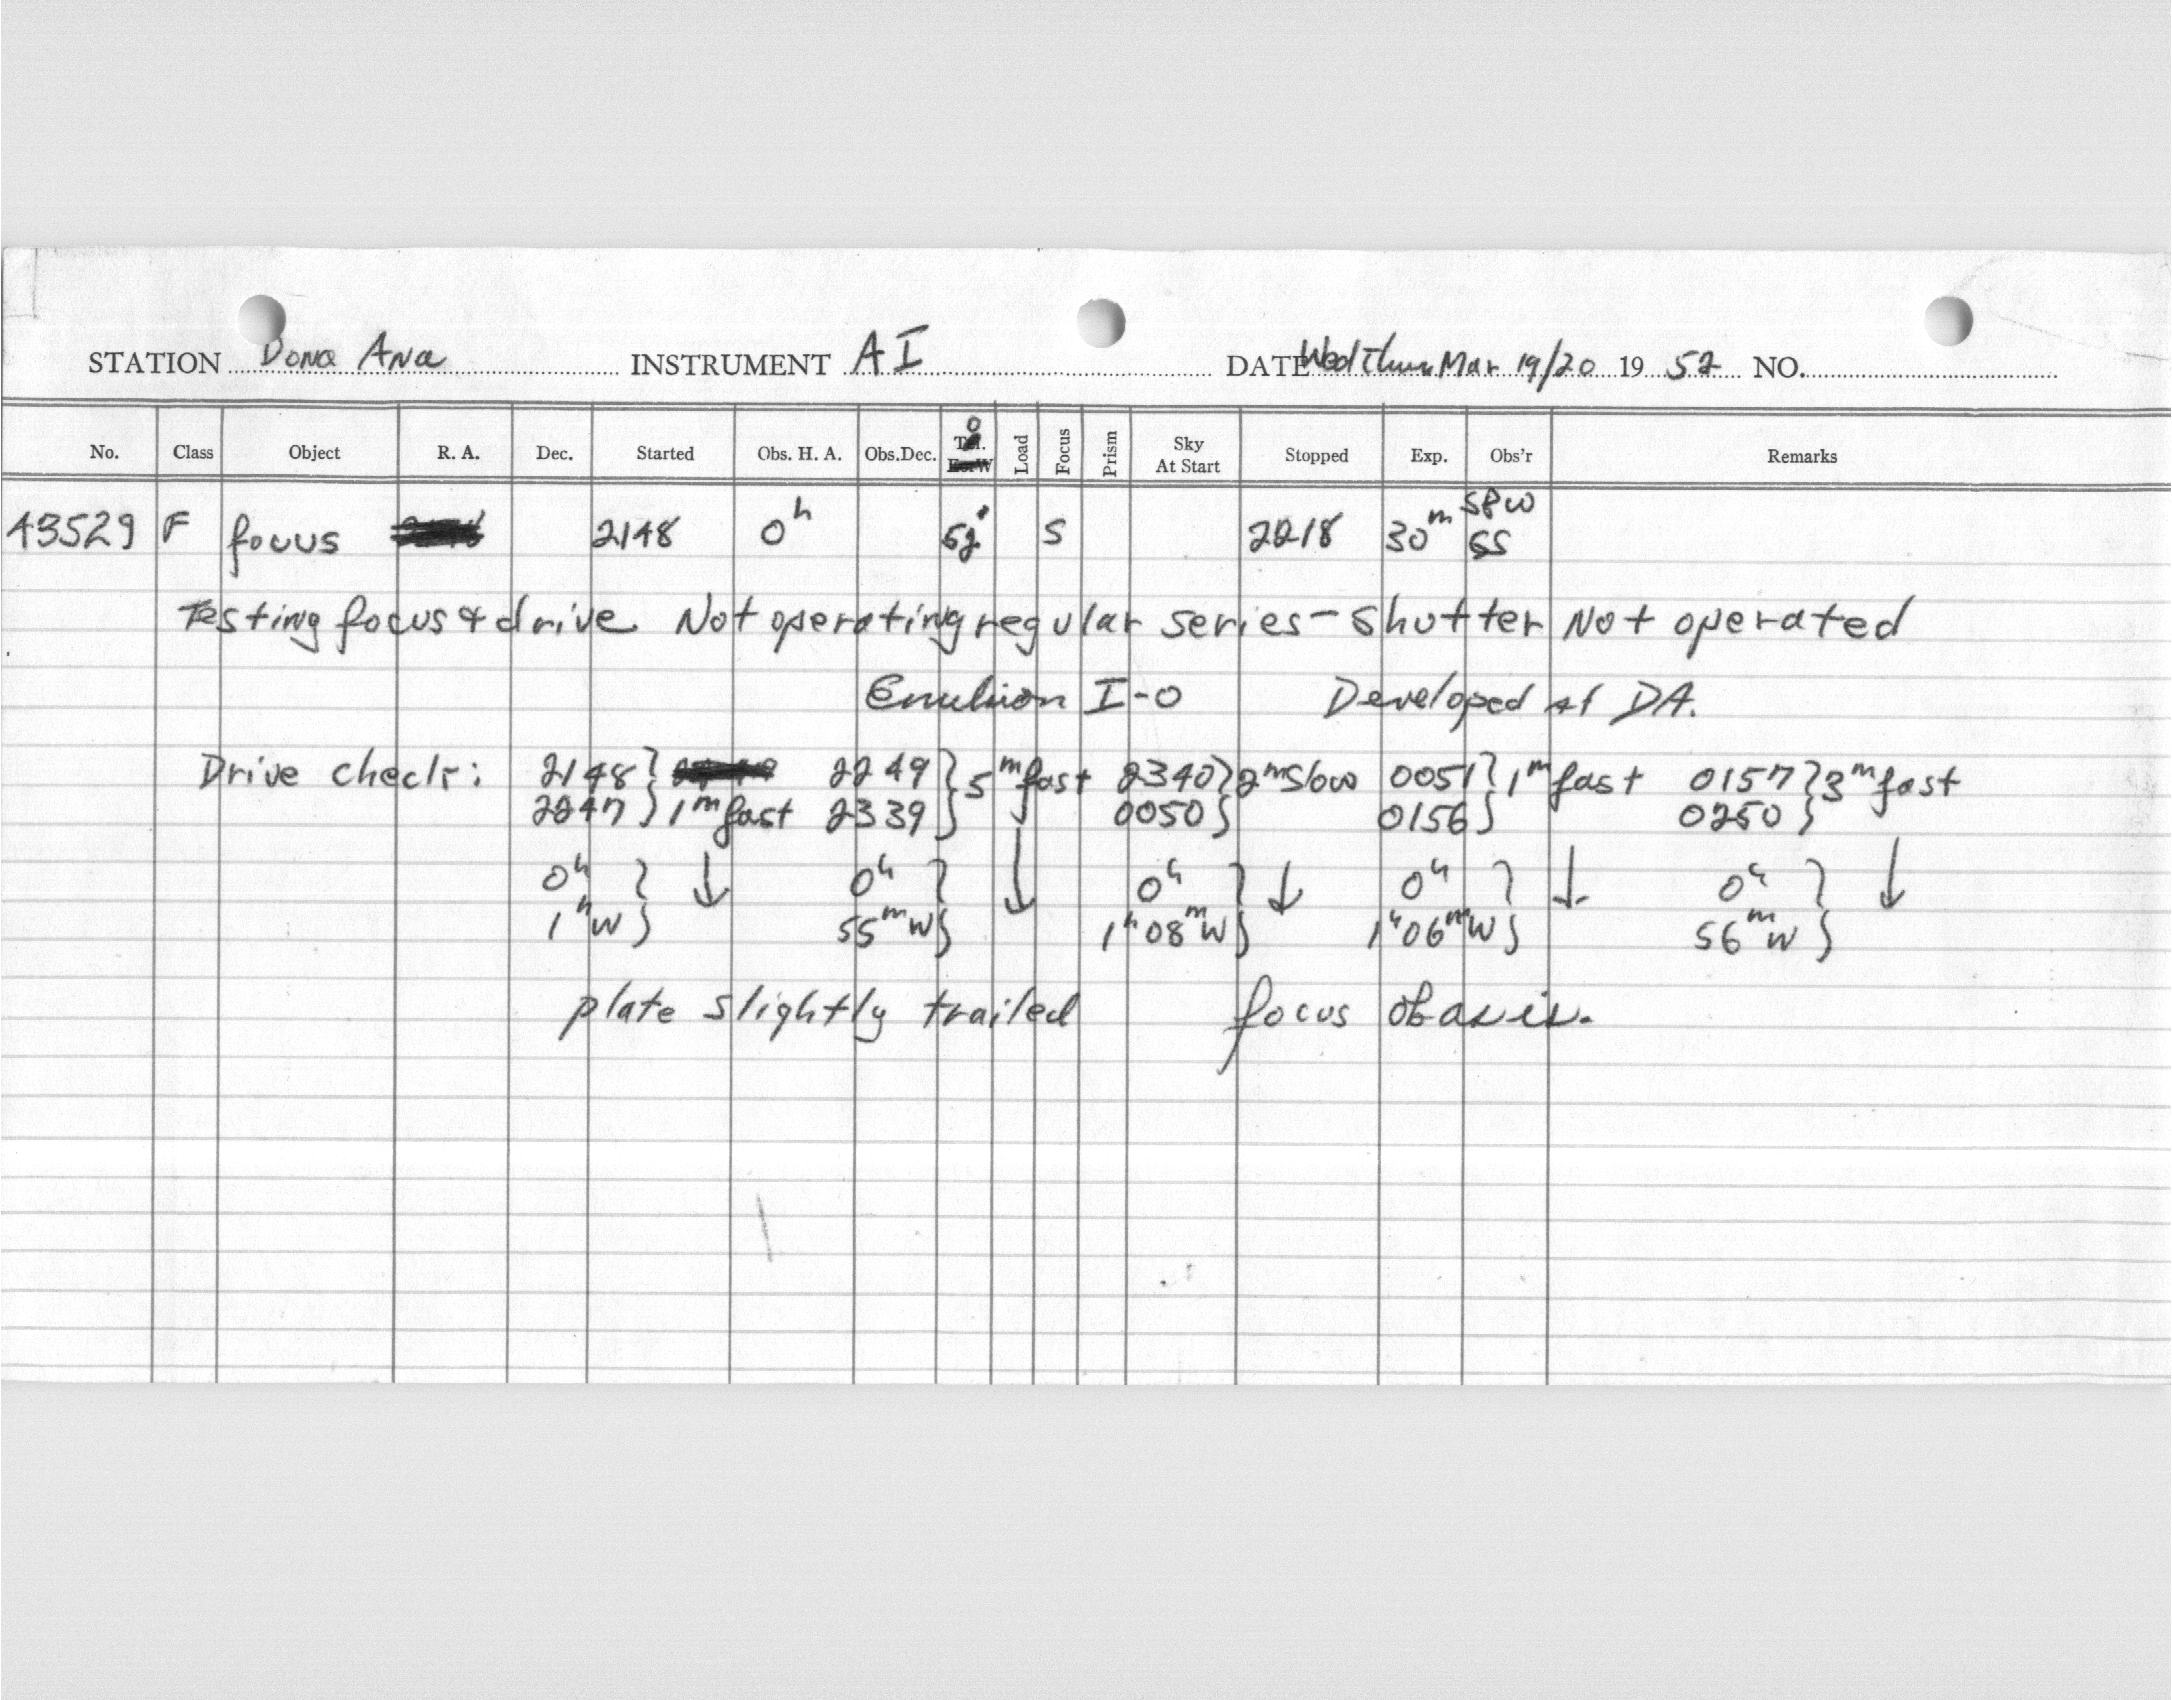 STATION Dona Ana INSTRUMENT AI DATE Wed Thurs Mar 19/20 19 52 NO.
No. Class Object R. A. Dec. Started Obs. H. A. Obs.Dec. Load Focus Prism Sky At Start Stopped Exp. Obs'r Remarks
43529 F focus 2148 0h S 2218 30m SS
Testing focus & drive Not operating regular series - Shutter Not operated
Emulsion I-O Developed at DA.
Drive check: 2148 } 2249 } 5m fast 2340 } 2m slow 0051 } 1m fast 0157 } 3m fast
2247 } 1m fast 2339 } 0050 } 0156 } 0250 }
0h } ↓ 0h } ↓ 0h } ↓ 0h } ↓ 0h } ↓
1hW } 55mW } 1h08mW } 1h06mW } 56mW }
plate slightly trailed focus of axis.